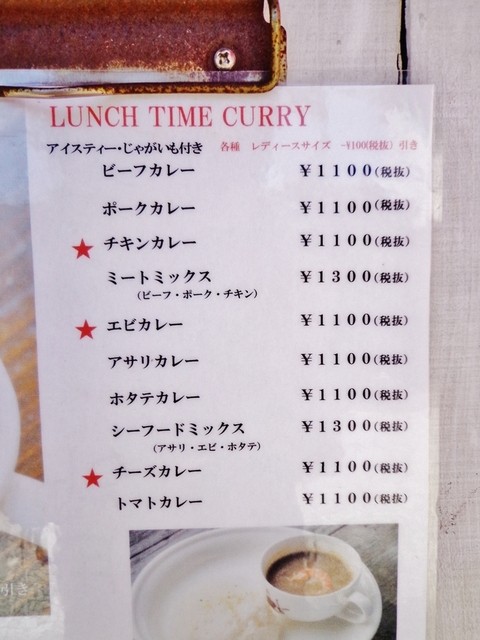 LUNCH TIME CURRY
アイスティー・じゃがいも付き 各種 レディースサイズ -¥100(税抜) 引き
ビーフカレー ¥1100(税抜)
ポークカレー ¥1100(税抜)
★ チキンカレー ¥1100(税抜)
ミートミックス ¥1300(税抜)
(ビーフ・ポーク・チキン)
★ エビカレー ¥1100(税抜)
アサリカレー ¥1100(税抜)
ホタテカレー ¥1100(税抜)
シーフードミックス ¥1300(税抜)
(アサリ・エビ・ホタテ)
★ チーズカレー ¥1100(税抜)
トマトカレー ¥1100(税抜)
引き